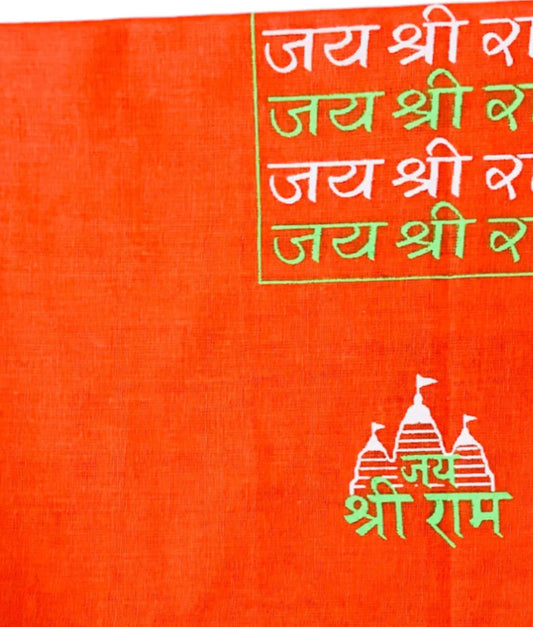 जय श्री रा
जय श्री र
जय श्री रा
जय श्री र
जय
श्री राम